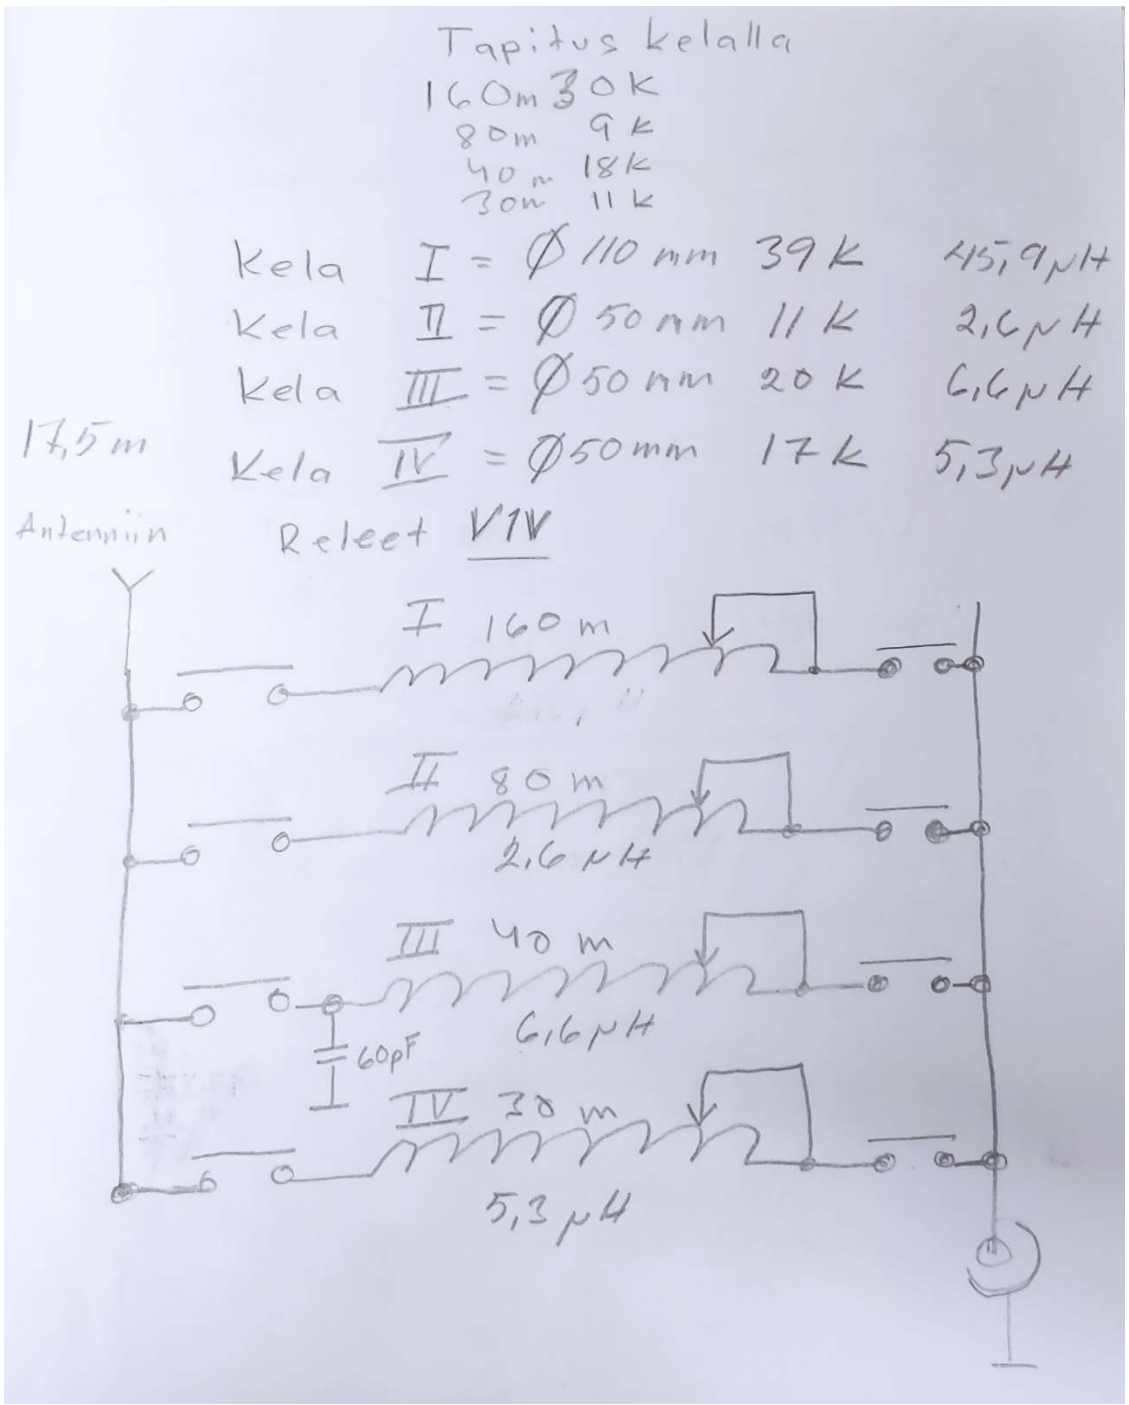 Tapitus kelalla
160m 30K
80m 9K
40m 18K
30m 11K
Kela I = Ø 110 mm 39K 45,9µH
Kela II = Ø 50 mm 11K 2,6µH
Kela III = Ø 50 mm 20K 6,6µH
17,5m
Kela IV = Ø 50mm 17K 5,3µH
Antenniin
Releet V1V
I 160m
II 80m
2,6µH
III 40m
6,6µH
60pF
IV 30m
5,3µH